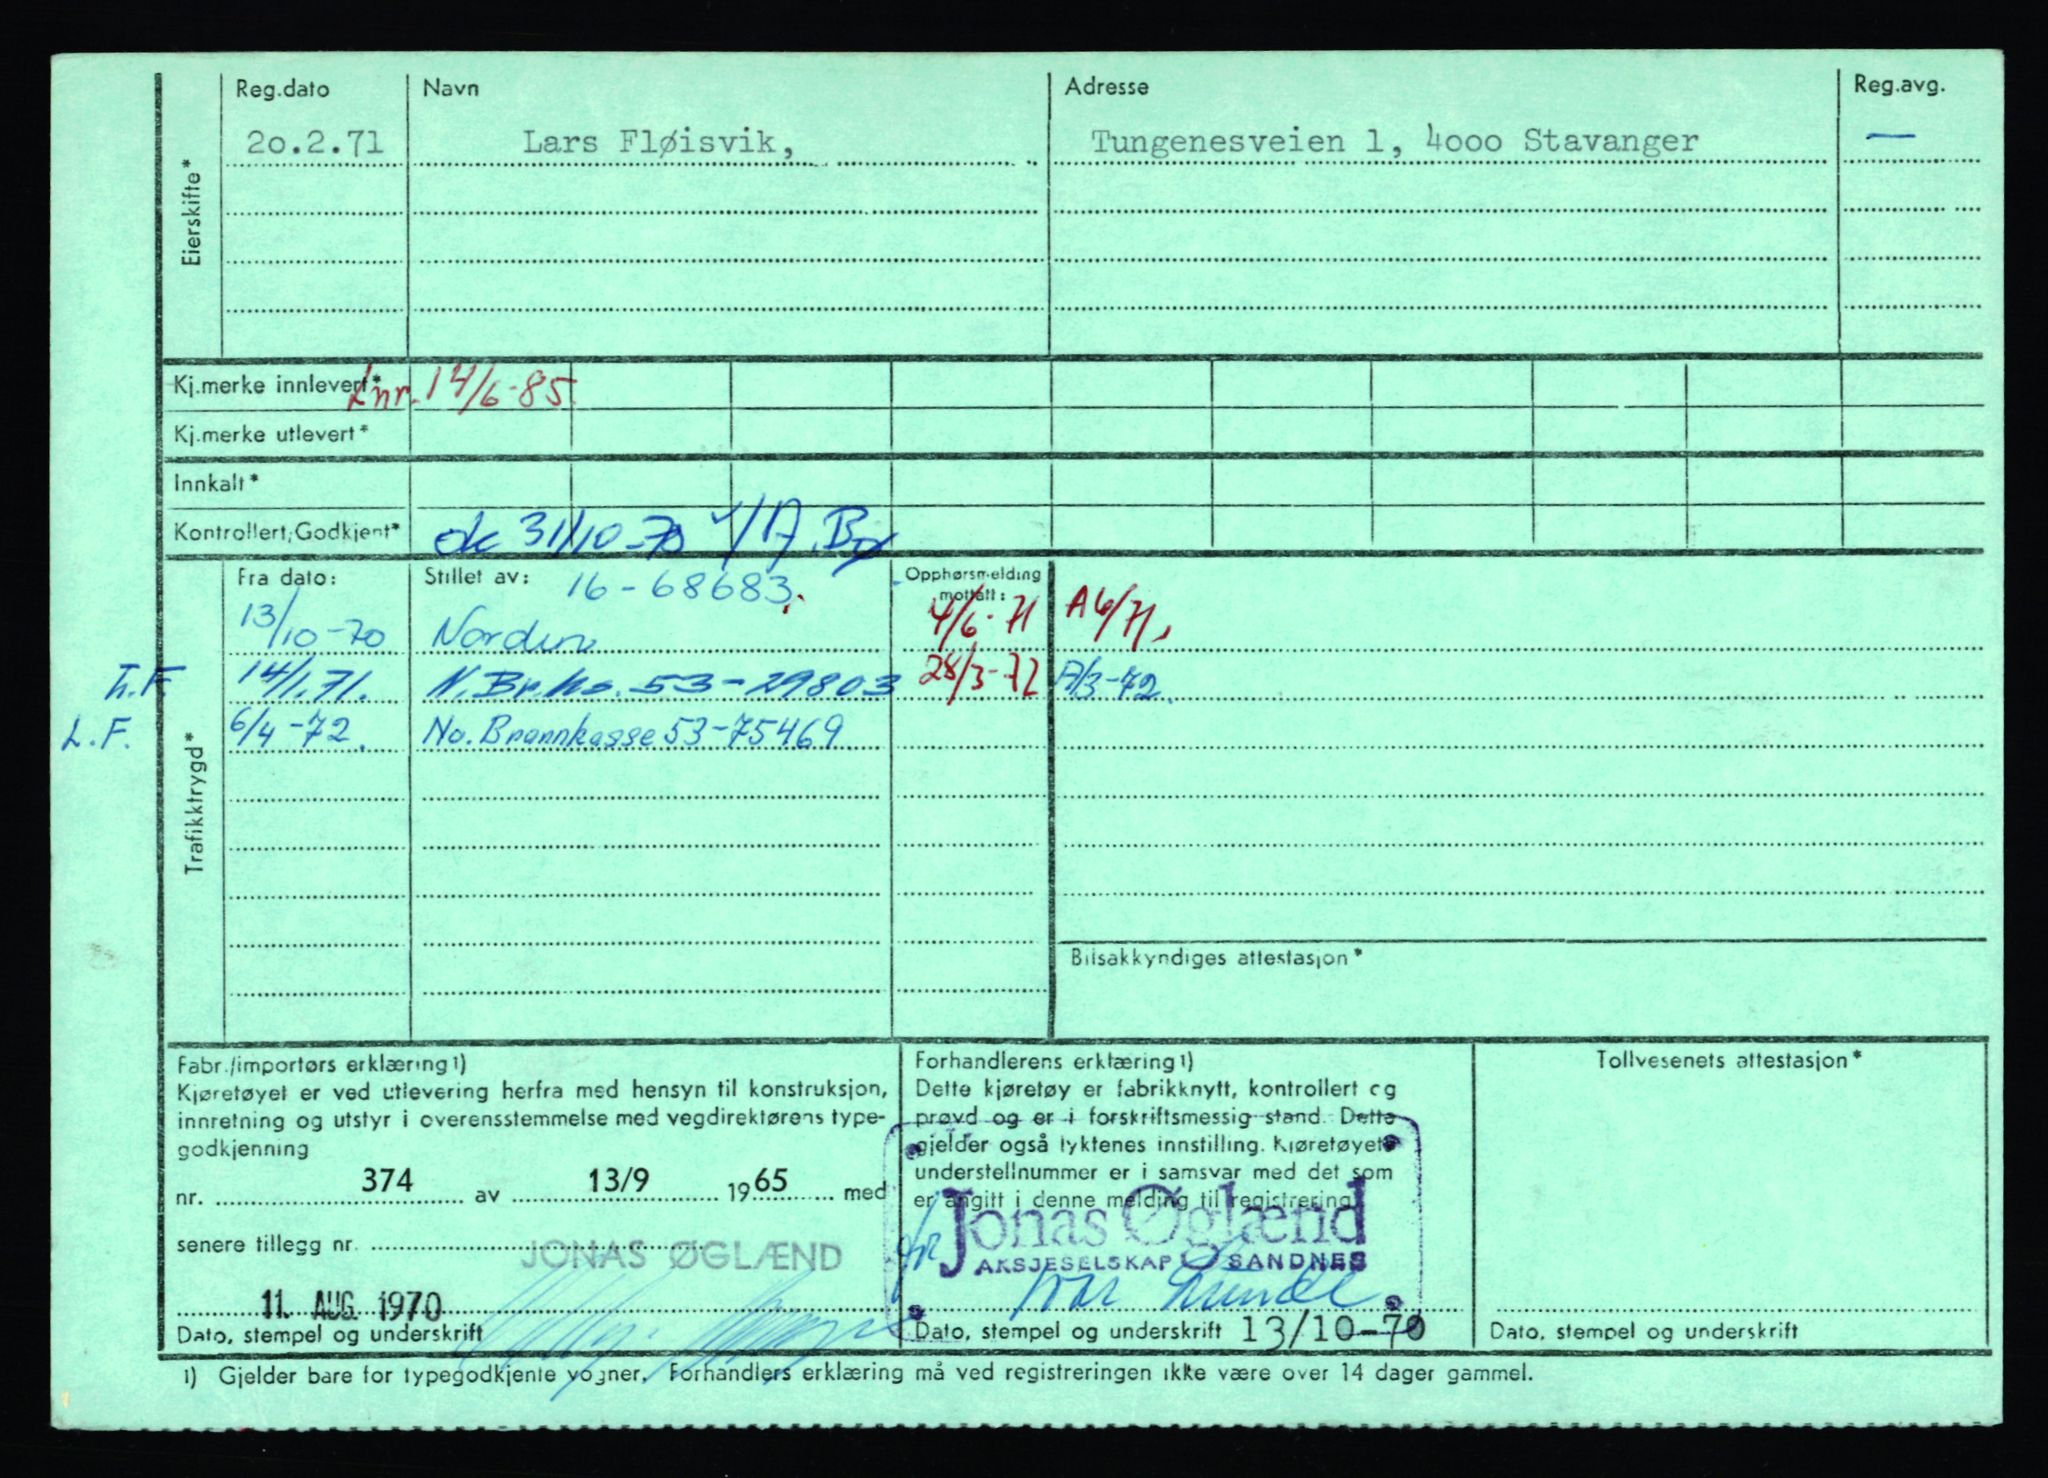 Reg.dato Navn Adresse Reg.avg.
Eierskifte*
20.2.71 Lars Fløisvik, Tungenesveien 1, 4000 Stavanger —
Kj.merke innlevert* Lnr. 14/6-85
Kj.merke utlevert*
Innkalt*
Kontrollert, Godkjent* ok 31/10-70
Trafikktrygd*
Fra dato: Stillet av: 16-68683. Opphørsmelding mottatt:
13/10-70 Norden 4/6-71 A 6/71,
L.F. 14/1.71. N.Br.ks. 53-29803 28/3-72 A/3-72.
L.F. 6/4-72. No. Brannkasse 53-75469
Bilsakkyndiges attestasjon*
Fabr./importørs erklæring 1)
Kjøretøyet er ved utlevering herfra med hensyn til konstruksjon,
innretning og utstyr i overensstemmelse med vegdirektørens type-
godkjenning
nr. 374 av 13/9 1965 med
senere tillegg nr.
JONAS ØGLÆND
11. AUG 1970
Dato, stempel og underskrift
Forhandlerens erklæring 1)
Dette kjøretøy er fabrikknytt, kontrollert og
prøvd og er i forskriftsmessig stand. Dette
gjelder også lyktenes innstilling. Kjøretøyets
understellnummer er i samsvar med det som
er angitt i denne melding til registrering.
Jonas Øglænd
AKSJESELSKAP SANDNES
for Ivar Lunde
Dato, stempel og underskrift 13/10-70
Tollvesenets attestasjon*
Dato, stempel og underskrift
1) Gjelder bare for typegodkjente vogner. Forhandlers erklæring må ved registreringen ikke være over 14 dager gammel.